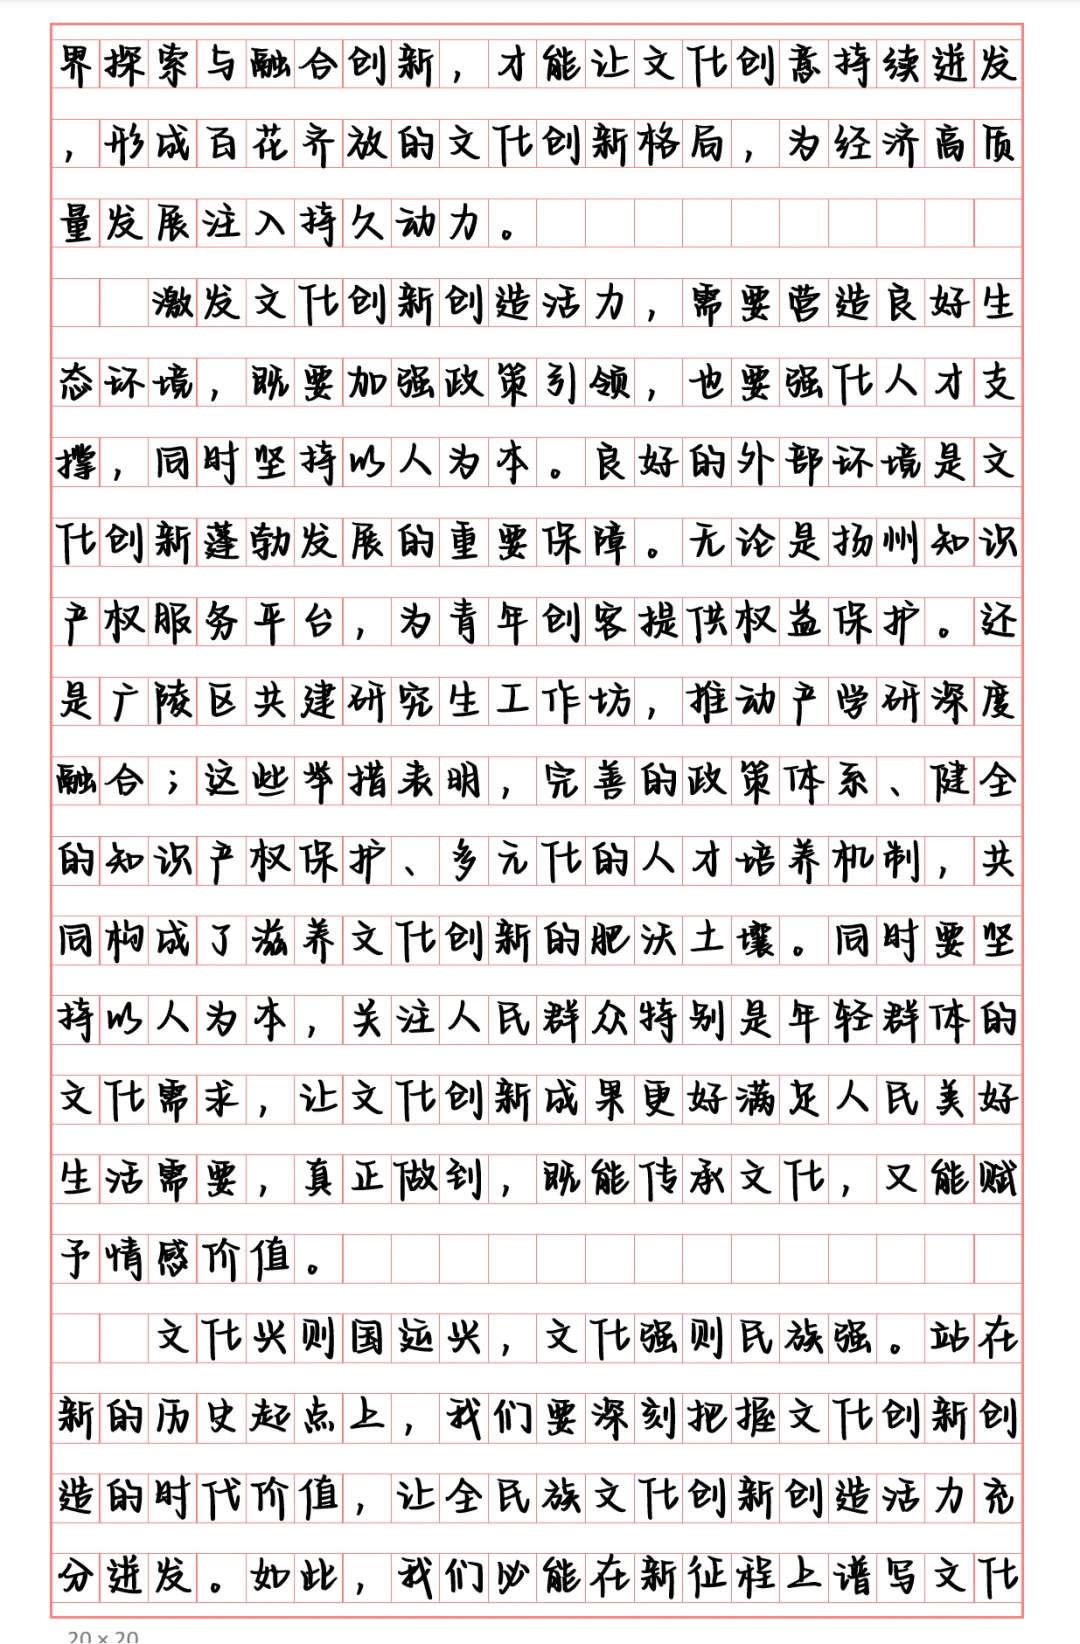 界探索与融合创新，才能让文化创意持续迸发
，形成百花齐放的文化创新格局，为经济高质
量发展注入持久动力。
激发文化创新创造活力，需要营造良好生
态环境，既要加强政策引领，也要强化人才支
撑，同时坚持以人为本。良好的外部环境是文
化创新蓬勃发展的重要保障。无论是扬州知识
产权服务平台，为青年创客提供权益保护。还
是广陵区共建研究生工作坊，推动产学研深度
融合；这些举措表明，完善的政策体系、健全
的知识产权保护、多元化的人才培养机制，共
同构成了滋养文化创新的肥沃土壤。同时要坚
持以人为本，关注人民群众特别是年轻群体的
文化需求，让文化创新成果更好满足人民美好
生活需要，真正做到，既能传承文化，又能赋
予情感价值。
文化兴则国运兴，文化强则民族强。站在
新的历史起点上，我们要深刻把握文化创新创
造的时代价值，让全民族文化创新创造活力充
分迸发。如此，我们必能在新征程上谱写文化
20×20